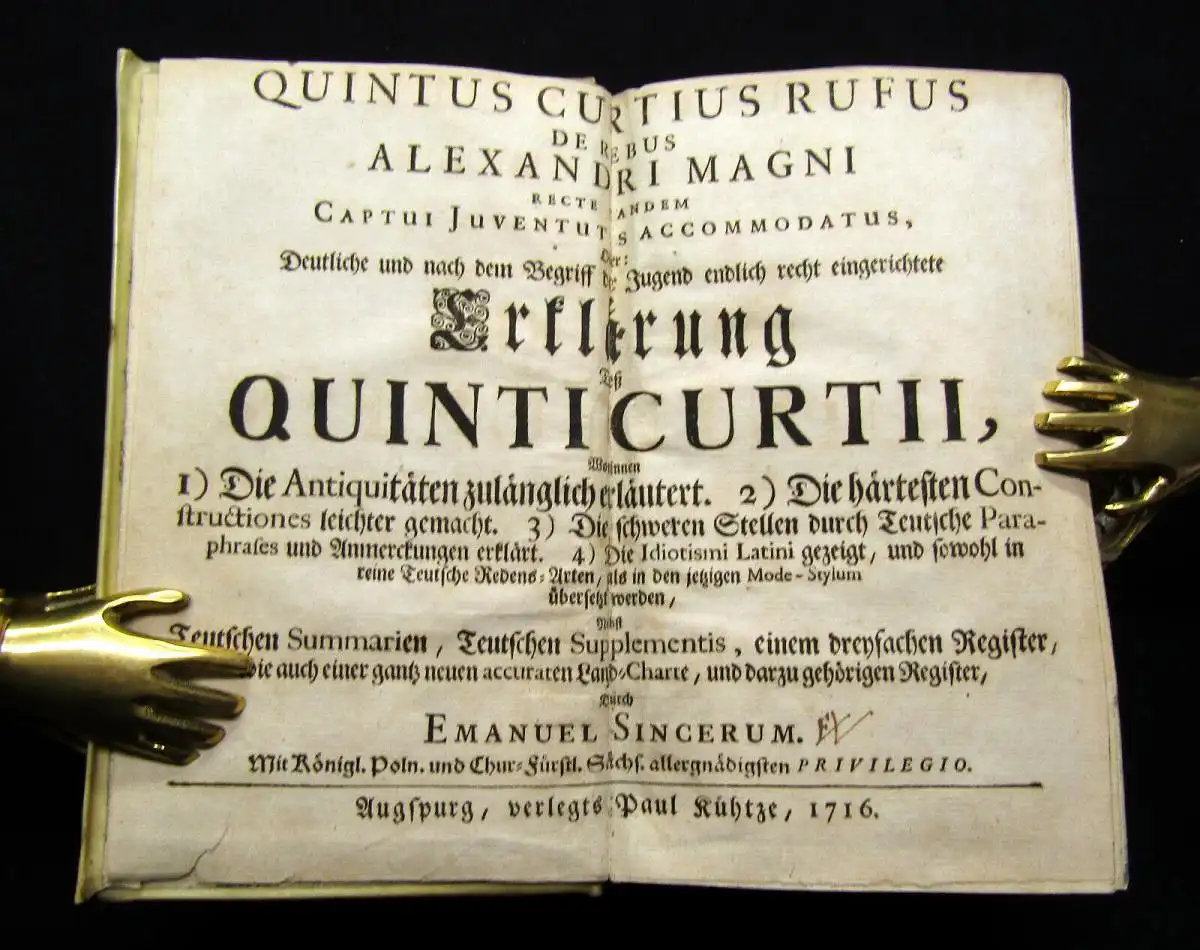 QUINTUS CURTIUS RUFUS
DE REBUS
ALEXANDRI MAGNI
RECTE TANDEM
CAPTUI JUVENTUTIS ACCOMMODATUS,
Oder:
Deutliche und nach dem Begriff der Jugend endlich recht eingerichtete
Erklärung
Deß
QUINTI CURTII,
Worinnen
1) Die Antiquitäten zulänglich erläutert. 2) Die härtesten Con-
structiones leichter gemacht. 3) Die schweren Stellen durch Teutsche Para-
phrases und Anmerckungen erklärt. 4) Die Idiotismi Latini gezeigt, und sowohl in
reine Teutsche Redens-Arten, als in den jetzigen Mode-Stylum
übersetzt werden,
Nebst
Teutschen Summarien, Teutschen Supplementis, einem dreyfachen Register,
wie auch einer gantz neuen accuraten Land-Charte, und darzu gehörigen Register,
Durch
EMANUEL SINCERUM.
Mit Königl. Poln. und Chur-Fürstl. Sächs. allergnädigsten PRIVILEGIO.
Augspurg, verlegts Paul Kühtze, 1716.